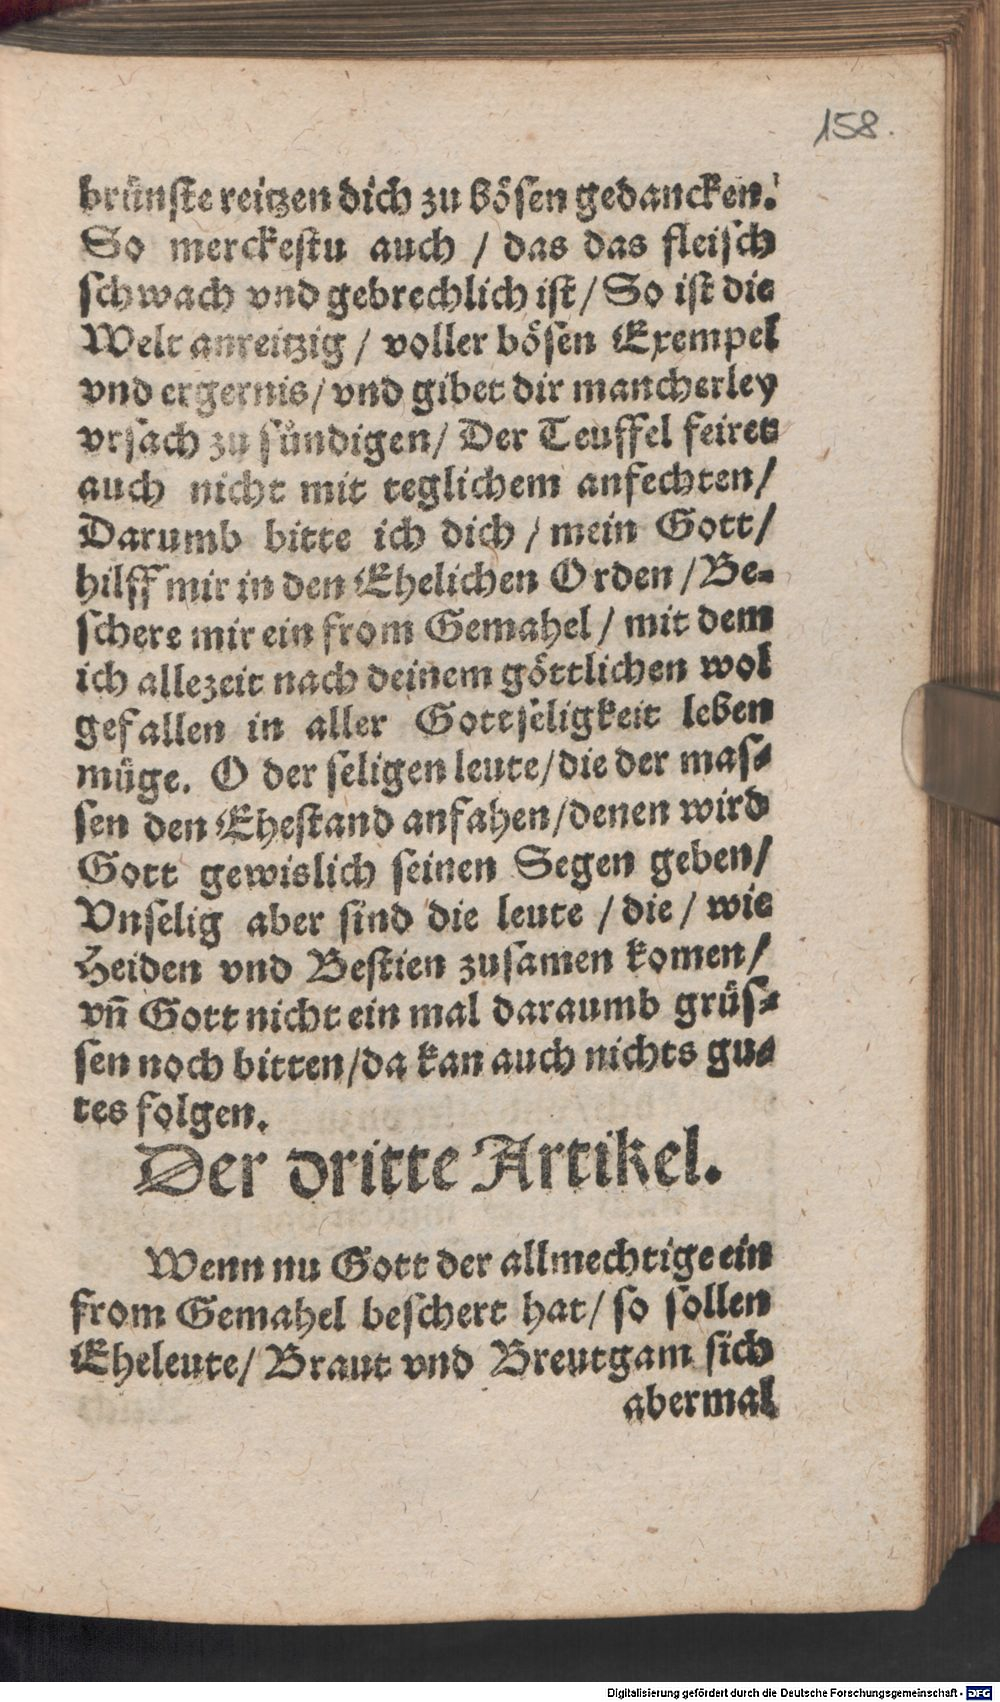 158.
brünste reitzen dich zu bösen gedancken.
So merckestu auch / das das fleisch
schwach vnd gebrechlich ist / So ist die
Welt anreitzig / voller bösen Exempel
vnd ergernis / vnd gibet dir mancherley
vrsach zu sündigen / Der Teuffel feiret
auch nicht mit teglichem anfechten /
Darumb bitte ich dich / mein Gott /
hilff mir in den Ehelichen Orden / Be-
schere mir ein from Gemahel / mit dem
ich allezeit nach deinem göttlichen wol
gefallen in aller Gottseligkeit leben
müge. O der seligen leute / die der mas-
sen den Ehestand anfahen / denen wird
Gott gewislich seinen Segen geben /
Vnselig aber sind die leute / die / wie
Heiden vnd Bestien zusamen komen /
vn̄ Gott nicht ein mal daraumb grüs-
sen noch bitten / da kan auch nichts gu-
tes folgen.
Der dritte Artikel.
Wenn nu Gott der allmechtige ein
from Gemahel beschert hat / so sollen
Eheleute / Braut vnd Breutgam sich
abermal
Digitalisierung gefördert durch die Deutsche Forschungsgemeinschaft - DFG